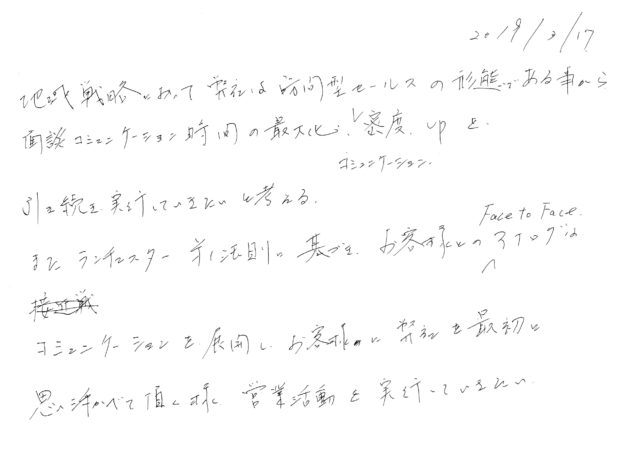 2019/2/17
地域戦略において弊社は訪問型セールスの形態である事から
面談コミュニケーション時間の最大化、密度up を
コミュニケーション
引き続き実行していきたいと考える。
Face to Face
また ランチェスター 第1法則に基づき、お客様との アナログな
接近戦
コミュニケーションを展開し、お客様に弊社を最初に
思い浮かべて頂く様 営業活動を実行していきたい。